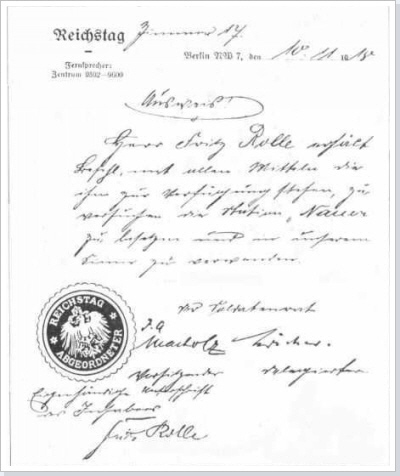 Reichstag Zimmer 17.
Fernsprecher:
Zentrum 9592—9600
Berlin NW 7, den 10. 11. 1918
Ausweis!
Herr Fritz Rolle erhält
Befehl, mit allen Mitteln die
ihm zur Verfügung stehen, zu
versuchen die Station „Nauen
zu besetzen und in unserem
Sinne zu verwenden.
REICHSTAG
ABGEORDNETER
Der Soldatenrat
J. A.
Vorsitzender Delegierter
Eigenhändige Unterschrift
des Inhabers
Fritz Rolle